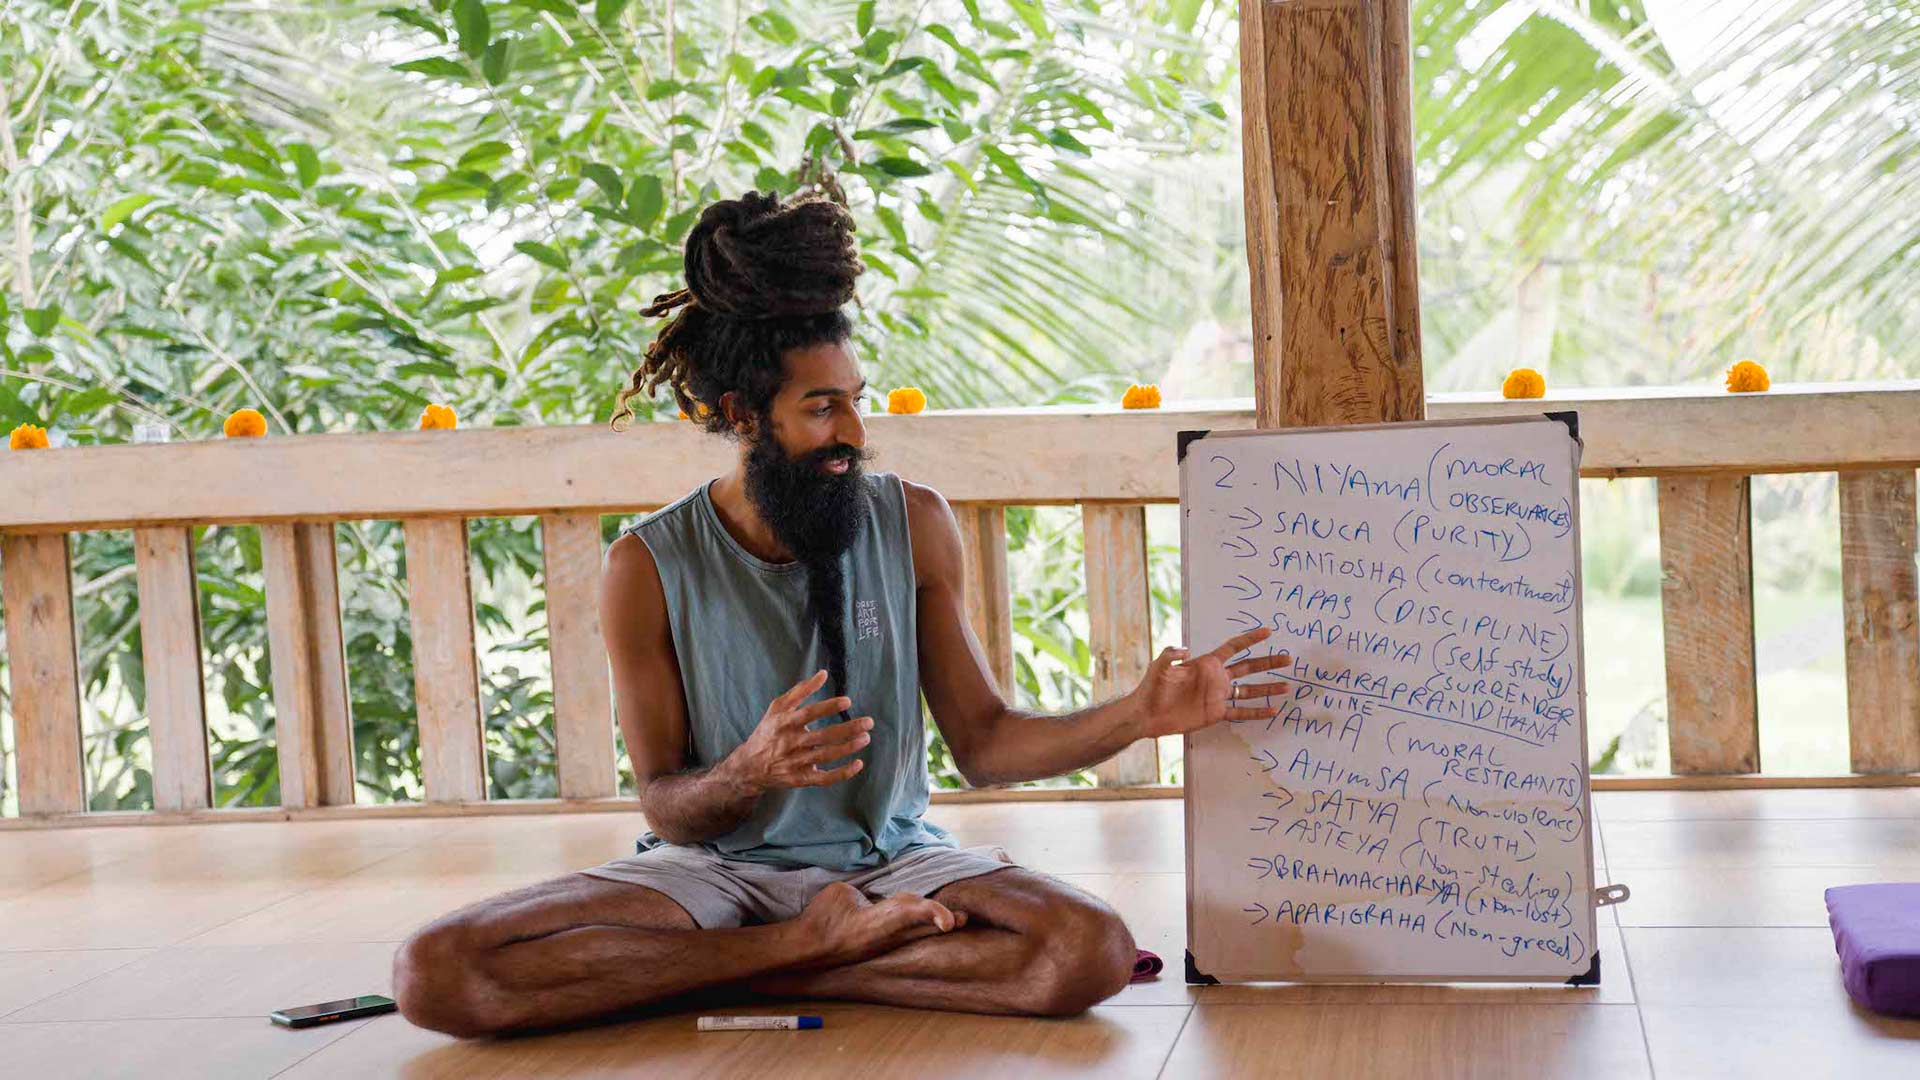 2. NIYAMA (MORAL
OBSERVANCES)
→ SAUCA (PURITY)
→ SANTOSHA (contentment)
→ TAPAS (DISCIPLINE)
→ SWADHYAYA (self-study)
ISHWARAPRANIDHANA
(SURRENDER
DIVINE
YAMA (MORAL
RESTRAINTS)
→ AHIMSA (Non-violence)
→ SATYA (TRUTH)
→ ASTEYA (Non-stealing)
→ BRAHMACHARYA (Non-lust)
→ APARIGRAHA (Non-greed)
ART
FOR
LIFE